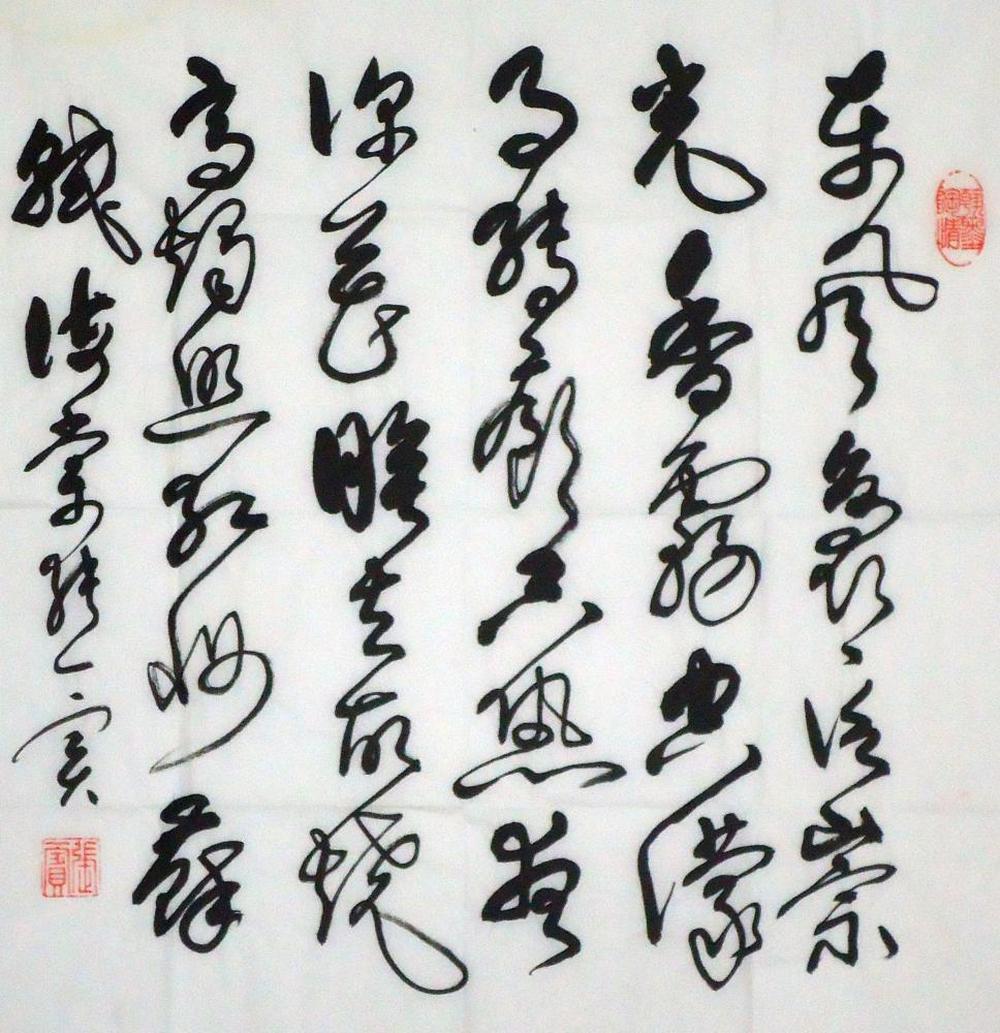 東風裊裊泛崇
光香霧空濛
月轉廊只恐夜
深花睡去故燒
高燭照紅妝蘇
軾海棠張賓
翰墨陶情